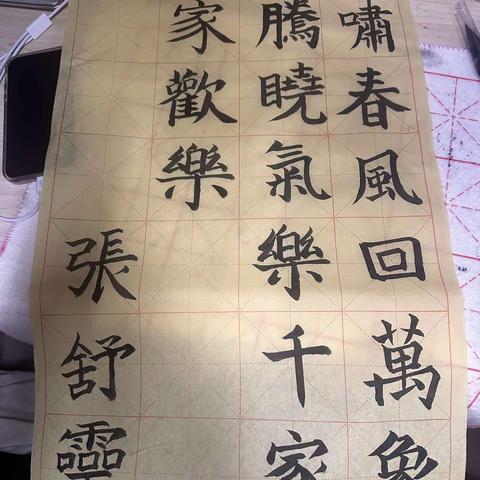 嘯春風回萬象
騰曉氣樂千家
家歡樂
張舒靈